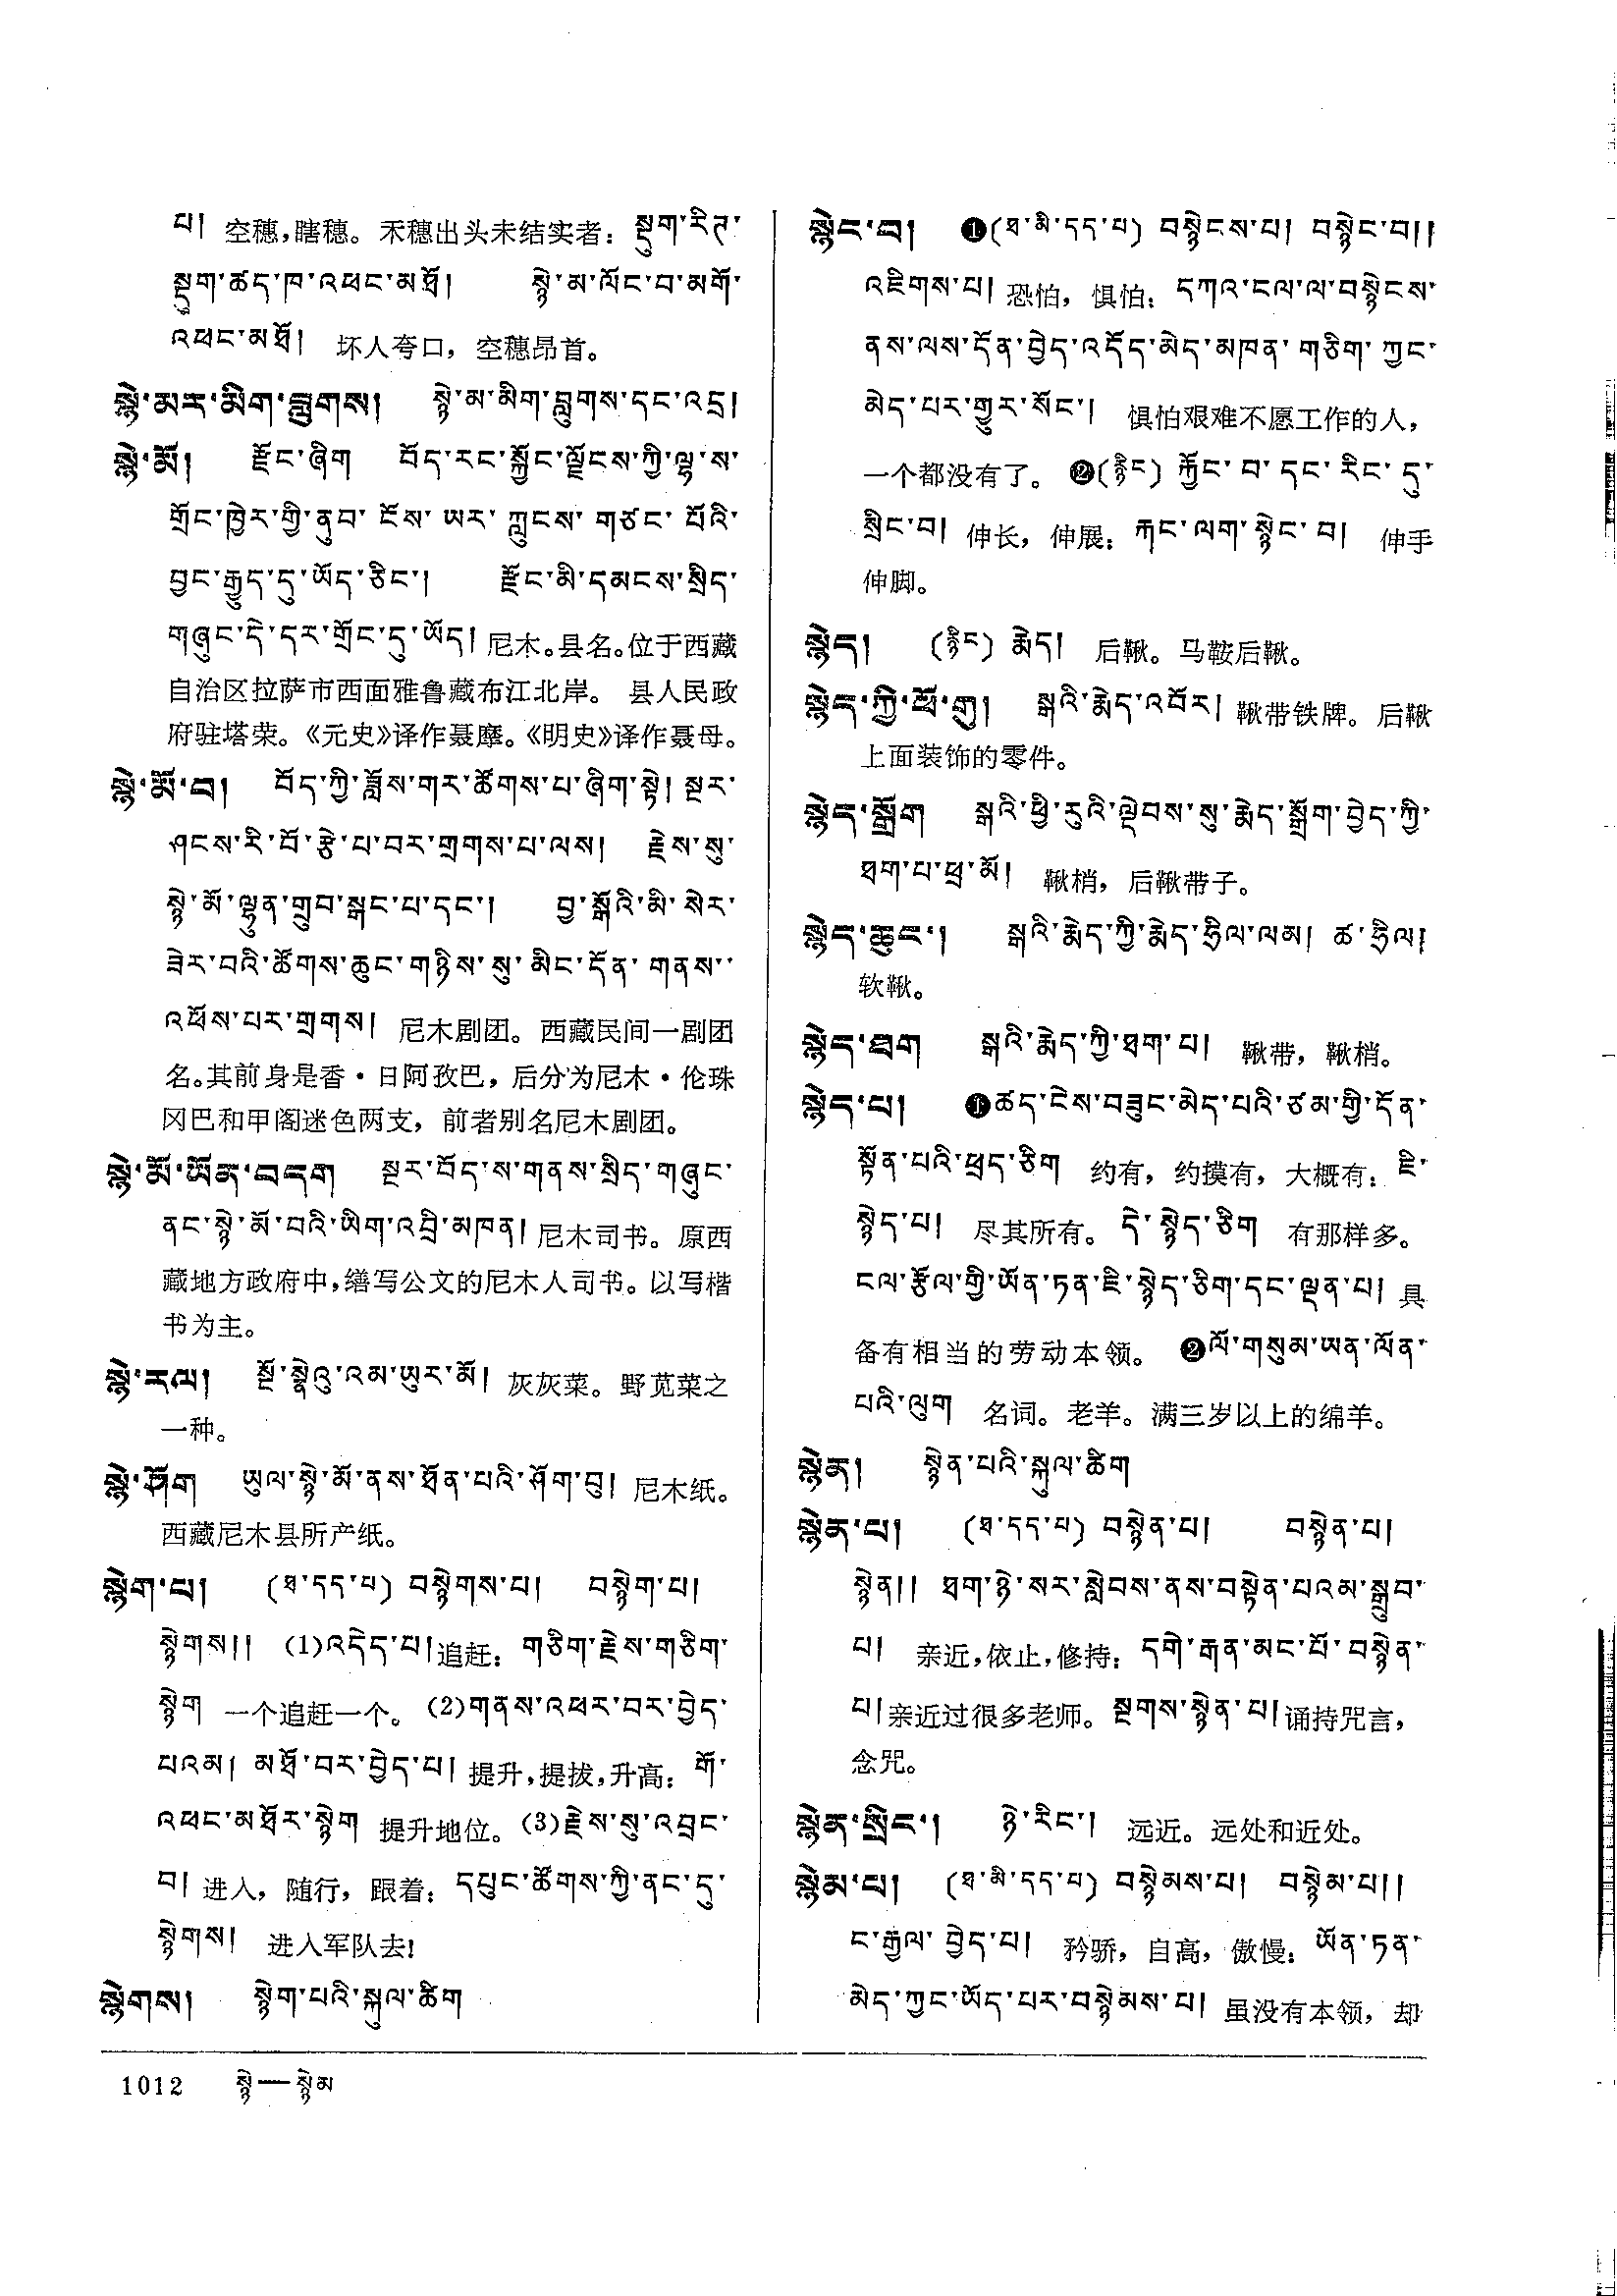 པ། 空穗,瞎穗。禾穗出头未结实者: སྡུག་རིཊ་
སྡུག་ཚད་ཁ་འཕང་མཐོ། སྙེ་མ་ལོང་བ་མགོ་
འཕང་མཐོ། 坏人夸口，空穗昂首。
སྙེ་མར་མིག་བླུགས། སྙེ་མ་མིག་བླུགས་དང་འདྲ།
སྙེ་མོ། རྫོང་ཞིག བོད་རང་སྐྱོང་ལྗོངས་ཀྱི་ལྷ་ས་
གྲོང་ཁྱེར་གྱི་ནུབ་ངོས་ཡར་ཀླུངས་གཙང་པོའི་
བྱང་རྒྱུད་དུ་ཡོད་ཅིང་། རྫོང་མི་དམངས་སྲིད་
གཞུང་དེ་དར་གྲོང་དུ་ཡོད། 尼木。县名。位于西藏
自治区拉萨市西面雅鲁藏布江北岸。 县人民政
府驻塔荣。《元史》译作聂摩。《明史》译作聂母。
སྙེ་མོ་བ། བོད་ཀྱི་ཟློས་གར་ཚོགས་པ་ཞིག་སྟེ། སྔར་
ཤངས་རི་བོ་རྩེ་པ་བར་གྲགས་པ་ལས། རྗེས་སུ་
སྙེ་མོ་ལྷུན་གྲུབ་སྒང་པ་དང་། བྱ་སྒོའི་མི་སེར་
ཟེར་བའི་ཚོགས་ཆུང་གཉིས་སུ་མིང་དོན་གནས་་
འཕོས་པར་གྲགས། 尼木剧团。西藏民间一剧团
名。其前身是香·日阿孜巴，后分为尼木·伦珠
冈巴和甲阁迷色两支，前者别名尼木剧团。
སྙེ་མོ་ཡོན་བདག སྔར་བོད་ས་གནས་སྲིད་གཞུང་
ནང་སྙེ་མོ་བའི་ཡིག་འབྲི་མཁན། 尼木司书。原西
藏地方政府中,缮写公文的尼木人司书。以写楷
书为主。
སྙེ་རལ། སྔོ་སྣེའུ་འམ་ཡུར་མོ། 灰灰菜。野苋菜之
一种。
སྙེ་ཤོག ཡུལ་སྙེ་མོ་ནས་ཐོན་པའི་ཤོག་བུ། 尼木纸。
西藏尼木县所产纸。
སྙེག་པ། (ཐ་དད་པ) བསྙེགས་པ། བསྙེག་པ།
སྙེགས།། (1)འདེད་པ།追赶: གཅིག་རྗེས་གཅིག་
སྙེག 一个追赶一个。(2)གནས་འཕར་བར་བྱེད་
པའམ། མཐོ་བར་བྱེད་པ། 提升,提拔,升高: གོ་
འཕང་མཐོར་སྙེག 提升地位。(3)རྗེས་སུ་འབྲང་
བ། 进入，随行，跟着: དཔུང་ཚོགས་ཀྱི་ནང་དུ་
སྙེགས། 进入军队去!
སྙེགས། སྙེག་པའི་སྐུལ་ཚིག
སྙེང་བ། ❶(ཐ་མི་དད་པ) བསྙེངས་པ། བསྙེང་བ།།
འཇིགས་པ། 恐怕，惧怕: དཀའ་ངལ་ལ་བསྙེངས་
ནས་ལས་དོན་བྱེད་འདོད་མེད་མཁན་གཅིག་ཀྱང་
མེད་པར་གྱུར་སོང་། 惧怕艰难不愿工作的人，
一个都没有了。 ❷(རྙིང) རྐྱོང་བ་དང་རིང་དུ་
སྲིང་བ། 伸长，伸展: རྐང་ལག་སྙེང་བ། 伸手
伸脚。
སྙེད། (རྙིང) རྨེད། 后鞦。马鞍后鞦。
སྙེད་ཀྱི་ཕོ་གུ། སྒའི་རྨེད་འབོར། 鞦带铁牌。后鞦
上面装饰的零件。
སྙེད་སྒྲོག སྒའི་ཕྱི་རུའི་ལྡེབས་སུ་རྨེད་སྒྲོག་བྱེད་ཀྱི་
ཐག་པ་ཕྲ་མོ། 鞦梢，后鞦带子。
སྙེད་ཆུང་། སྒའི་རྨེད་ཀྱི་རྨེད་ཧྲིལ་ལམ། ཚ་ཧྲིལ།
软鞦。
སྙེད་ཐག སྒའི་རྨེད་ཀྱི་ཐག་པ། 鞦带，鞦梢。
སྙེད་པ། ❶ཚད་ངེས་བཟུང་མེད་པའི་ཙམ་གྱི་དོན་
སྟོན་པའི་ཕྲད་ཅིག 约有，约摸有，大概有: ཇི་
སྙེད་པ། 尽其所有。 དེ་སྙེད་ཅིག 有那样多。
ངལ་རྩོལ་གྱི་ཡོན་ཏན་ཇི་སྙེད་ཅིག་དང་ལྡན་པ། 具
备有相当的劳动本领。 ❷ལོ་གསུམ་ཡན་ལོན་
པའི་ལུག 名词。老羊。满三岁以上的绵羊。
སྙེན། སྙེན་པའི་སྐུལ་ཚིག
སྙེན་པ། (ཐ་དད་པ) བསྙེན་པ། བསྙེན་པ།
སྙེན།། ཐག་ཉེ་སར་སླེབས་ནས་བསྟེན་པའམ་སྒྲུབ་
པ། 亲近,依止,修持: དགེ་རྒན་མང་པོ་བསྙེན་
པ། 亲近过很多老师。 སྔགས་སྙེན་པ། 诵持咒言，
念咒。
སྙེན་སྲིང་། ཉེ་རིང་། 远近。远处和近处。
སྙེམ་པ། (ཐ་མི་དད་པ) བསྙེམས་པ། བསྙེམ་པ།།
ང་རྒྱལ་བྱེད་པ། 矜骄，自高，傲慢: ཡོན་ཏན་
མེད་ཀྱང་ཡོད་པར་བསྙེམས་པ། 虽没有本领，却
1012 སྙེ—སྙེམ